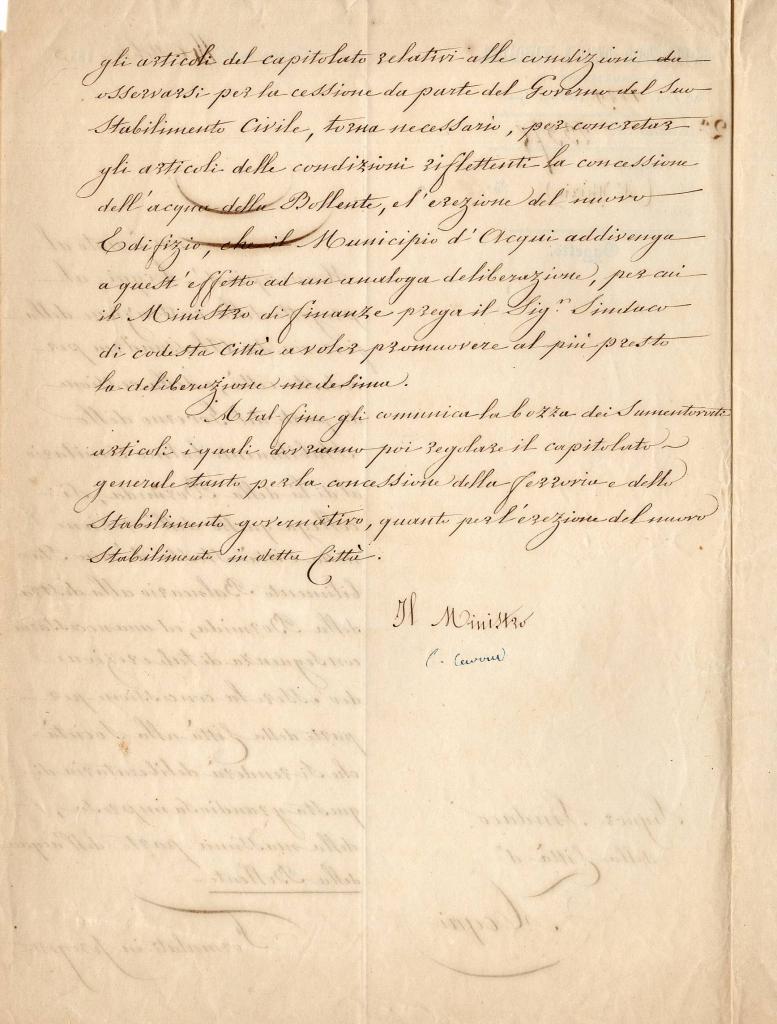 gli articoli del capitolato relativi alle condizioni da
osservarsi per la cessione da parte del Governo del suo
Stabilimento Civile, torna necessario, per concretar
gli articoli delle condizioni riflettenti la concessione
dell'acqua della Bollente, e l'erezione del nuovo
Edifizio, che il Municipio d'Acqui addivenga
a quest'effetto ad un analoga deliberazione, per cui
il Ministro di finanze prega il Sig.r Sindaco
di codesta Città a voler promuovere al più presto
la deliberazione medesima.
A tal fine gli comunica la bozza dei Sumentovati
articoli i quali dovranno poi regolare il capitolato
generale tanto per la concessione della ferrovia e dello
Stabilimento governativo, quanto per l'erezione del nuovo
Stabilimento in detta Città.
Il Ministro
C. Cavour